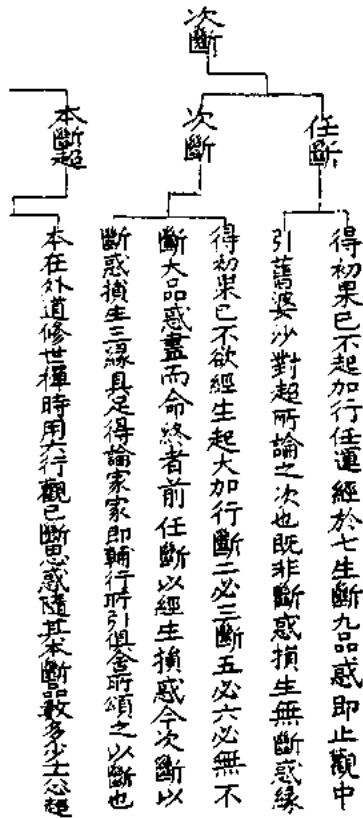 次斷
任斷
得初果已不起加行任運經於七生斷九品惑即止觀中
引舊婆沙對超所論之次也既非斷惑損生無斷惑緣
次斷
得初果已不欲經生起大加行斷二必三斷五必六必無不
斷大品惑盡而命終者前任斷以經生損惑今次斷以
斷惑損生三緣具足得論家家即輔行所引俱舍所頌之以斷也
本斷超
本在外道修世禪時用六行觀已斷思惑隨其本斷品數多少